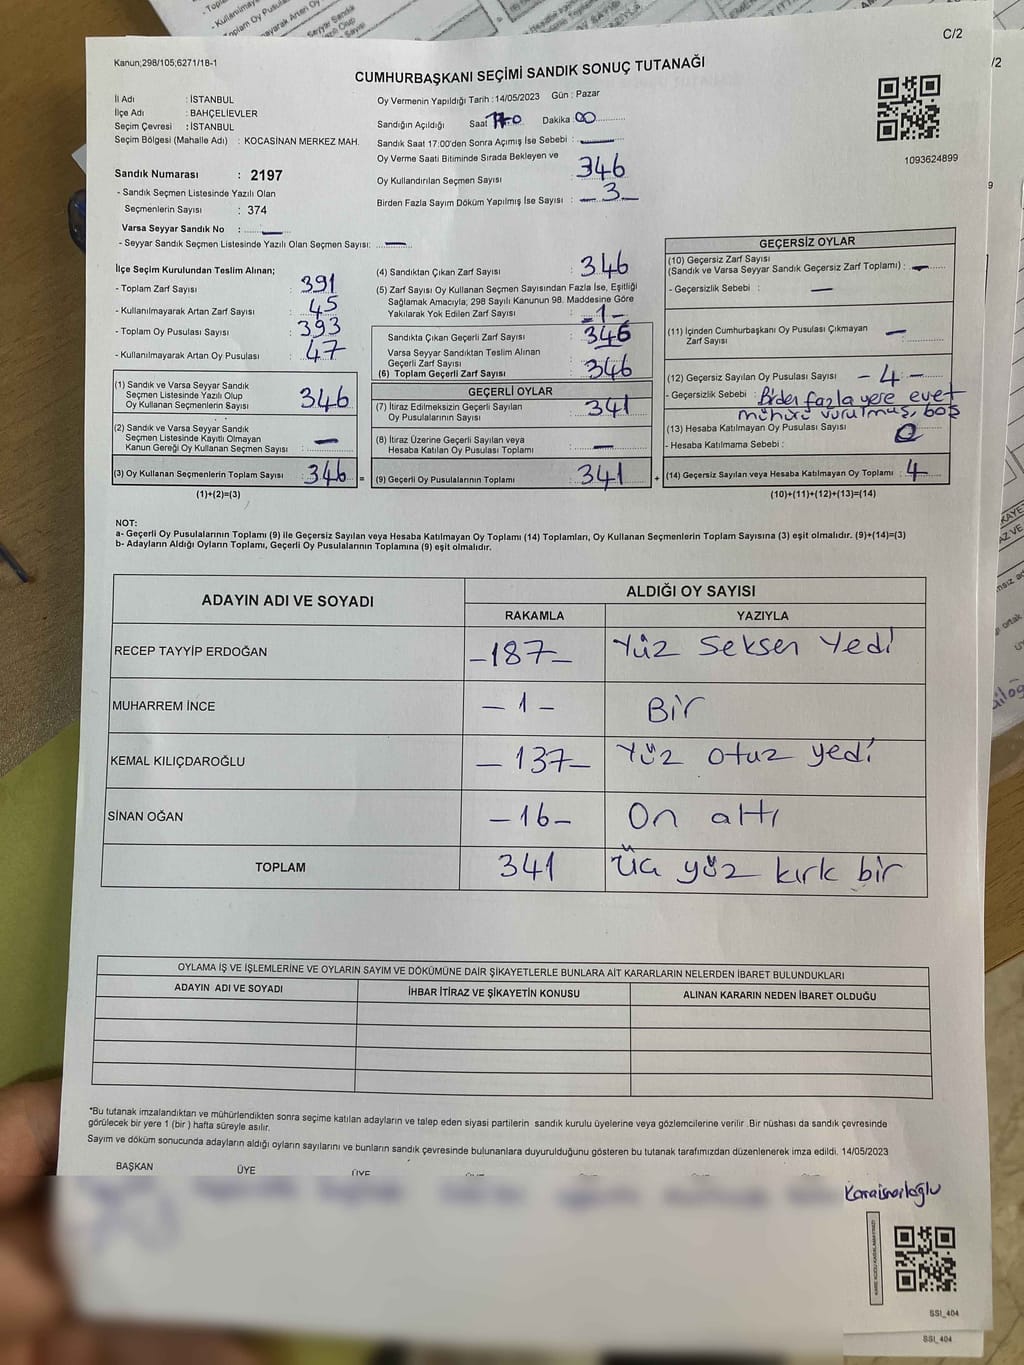 C/2
Kanun;298/105;6271/18-1
CUMHURBAŞKANI SEÇİMİ SANDIK SONUÇ TUTANAĞI
İl Adı : İSTANBUL
İlçe Adı : BAHÇELİEVLER
Seçim Çevresi : İSTANBUL
Seçim Bölgesi (Mahalle Adı) : KOCASİNAN MERKEZ MAH.
Oy Vermenin Yapıldığı Tarih : 14/05/2023 Gün : Pazar
Sandığın Açıldığı Saat Dakika 00
Sandık Saat 17:00'den Sonra Açılmış İse Sebebi : —
Oy Verme Saati Bitiminde Sırada Bekleyen ve
Oy Kullandırılan Seçmen Sayısı : 346
Birden Fazla Sayım Döküm Yapılmış İse Sayısı : — 3 —
1093624899
Sandık Numarası : 2197
- Sandık Seçmen Listesinde Yazılı Olan
Seçmenlerin Sayısı : 374
Varsa Seyyar Sandık No : —
- Seyyar Sandık Seçmen Listesinde Yazılı Olan Seçmen Sayısı: —
İlçe Seçim Kurulundan Teslim Alınan;
- Toplam Zarf Sayısı : 391
- Kullanılmayarak Artan Zarf Sayısı : 45
- Toplam Oy Pusulası Sayısı : 393
- Kullanılmayarak Artan Oy Pusulası : 47
(1) Sandık ve Varsa Seyyar Sandık
Seçmen Listesinde Yazılı Olup
Oy Kullanan Seçmenlerin Sayısı : 346
(2) Sandık ve Varsa Seyyar Sandık
Seçmen Listesinde Kayıtlı Olmayan
Kanun Gereği Oy Kullanan Seçmen Sayısı : —
(3) Oy Kullanan Seçmenlerin Toplam Sayısı : 346 =
(1)+(2)=(3)
(4) Sandıktan Çıkan Zarf Sayısı : 346
(5) Zarf Sayısı Oy Kullanan Seçmen Sayısından Fazla İse, Eşitliği
Sağlamak Amacıyla; 298 Sayılı Kanunun 98. Maddesine Göre
Yakılarak Yok Edilen Zarf Sayısı : -1-
Sandıkta Çıkan Geçerli Zarf Sayısı : 346
Varsa Seyyar Sandıktan Teslim Alınan
Geçerli Zarf Sayısı
(6) Toplam Geçerli Zarf Sayısı : 346
GEÇERLİ OYLAR
(7) İtiraz Edilmeksizin Geçerli Sayılan
Oy Pusulalarının Sayısı : 341
(8) İtiraz Üzerine Geçerli Sayılan veya
Hesaba Katılan Oy Pusulası Toplamı : —
(9) Geçerli Oy Pusulalarının Toplamı : 341 +
GEÇERSİZ OYLAR
(10) Geçersiz Zarf Sayısı
(Sandık ve Varsa Seyyar Sandık Geçersiz Zarf Toplamı) : —
- Geçersizlik Sebebi : —
(11) İçinden Cumhurbaşkanı Oy Pusulası Çıkmayan
Zarf Sayısı : —
(12) Geçersiz Sayılan Oy Pusulası Sayısı - 4 -
- Geçersizlik Sebebi : Birden fazla yere evet
mühürü vurulmuş, boş
(13) Hesaba Katılmayan Oy Pusulası Sayısı : 0
- Hesaba Katılmama Sebebi :
(14) Geçersiz Sayılan veya Hesaba Katılmayan Oy Toplamı : 4
(10)+(11)+(12)+(13)=(14)
NOT:
a- Geçerli Oy Pusulalarının Toplamı (9) ile Geçersiz Sayılan veya Hesaba Katılmayan Oy Toplamı (14) Toplamları, Oy Kullanan Seçmenlerin Toplam Sayısına (3) eşit olmalıdır. (9)+(14)=(3)
b- Adayların Aldığı Oyların Toplamı, Geçerli Oy Pusulalarının Toplamına (9) eşit olmalıdır.
ADAYIN ADI VE SOYADI ALDIĞI OY SAYISI
RAKAMLA YAZIYLA
RECEP TAYYİP ERDOĞAN -187- Yüz Seksen Yedi
MUHARREM İNCE - 1 - Bir
KEMAL KILIÇDAROĞLU - 137- Yüz otuz yedi
SİNAN OĞAN -16- On altı
TOPLAM 341 Üç yüz kırk bir
OYLAMA İŞ VE İŞLEMLERİNE VE OYLARIN SAYIM VE DÖKÜMÜNE DAİR ŞİKAYETLERLE BUNLARA AİT KARARLARIN NELERDEN İBARET BULUNDUKLARI
ADAYIN ADI VE SOYADI İHBAR İTİRAZ VE ŞİKAYETİN KONUSU ALINAN KARARIN NEDEN İBARET OLDUĞU
*Bu tutanak imzalandıktan ve mühürlendikten sonra seçime katılan adayların ve talep eden siyasi partilerin sandık kurulu üyelerine veya gözlemcilerine verilir .Bir nüshası da sandık çevresinde
görülecek bir yere 1 (bir ) hafta süreyle asılır.
Sayım ve döküm sonucunda adayların aldığı oyların sayılarını ve bunların sandık çevresinde bulunanlara duyurulduğunu gösteren bu tutanak tarafımızdan düzenlenerek imza edildi. 14/05/2023
BAŞKAN ÜYE ÜYE
Karaismailoğlu
SSI_404
SSI_404